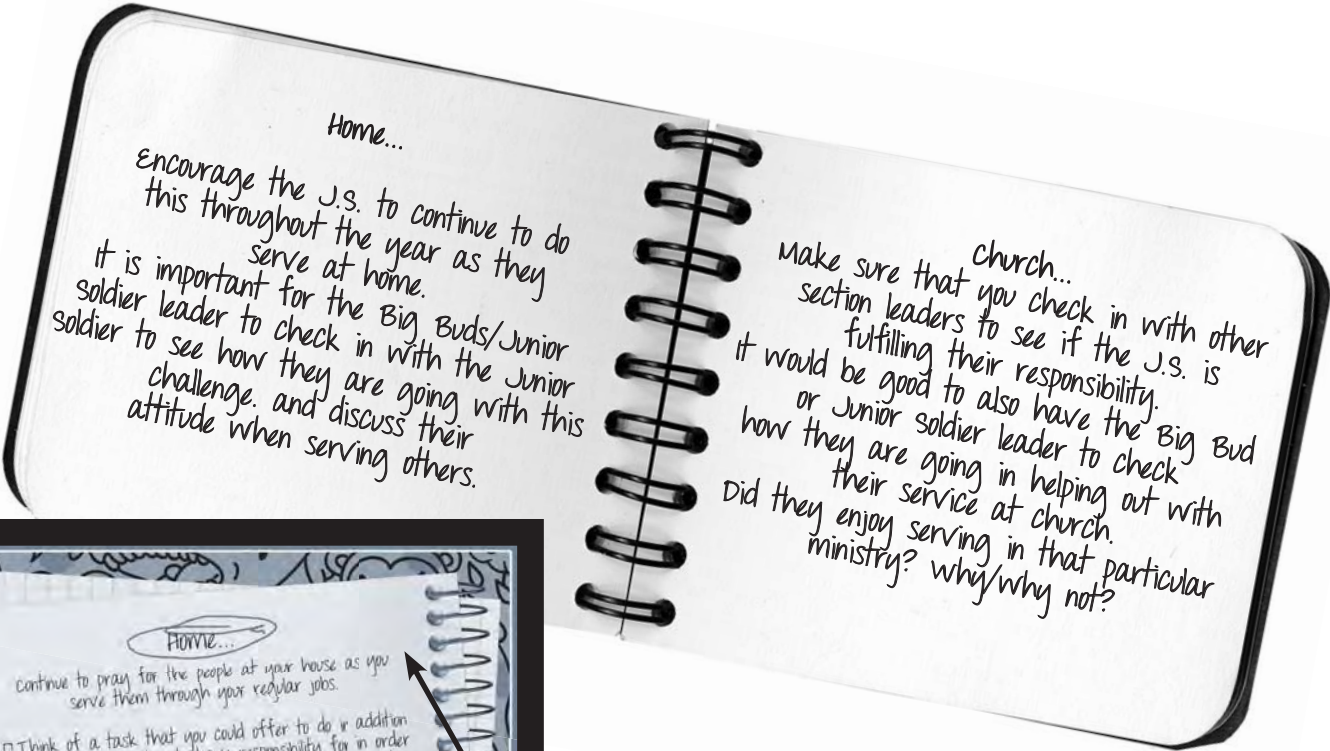 Home...
Encourage the J.S. to continue to do
this throughout the year as they
serve at home.
It is important for the Big Buds/Junior
Soldier leader to check in with the Junior
Soldier to see how they are going with this
challenge. and discuss their
attitude when serving others.
Church...
Make sure that you check in with other
section leaders to see if the J.S. is
fulfilling their responsibility.
It would be good to also have the Big Bud
or Junior Soldier leader to check
how they are going in helping out with
their service at church.
Did they enjoy serving in that particular
ministry? Why/why not?
Home...
Continue to pray for the people at your house as you
serve them through your regular jobs.
Think of a task that you could offer to do in addition
responsibility for in order